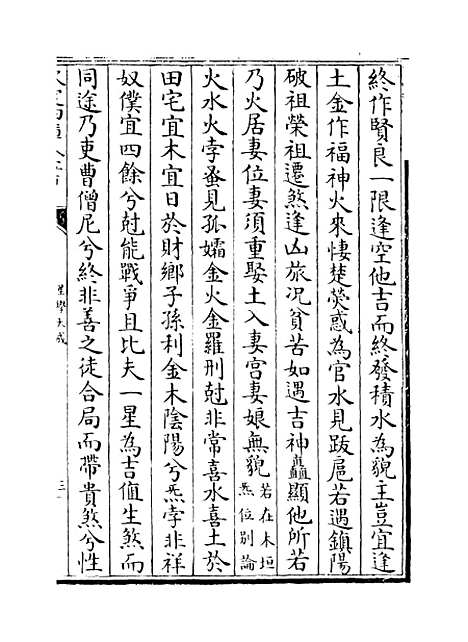 終作賢良一限逢空他吉而終發積水為貌主豈宜逢
土金作福神火來悽楚熒惑為官水見跋扈若遇鎮陽
破祖榮祖遷煞逢山旅况貧苦如遇吉神矗顯他所若
乃火居妻位妻須重娶土入妻宮妻娘無貌若在木垣
炁位别論
火水火孛蚤見孤孀金火金羅刑尅非常喜水喜土於
田宅宜木宜日於財鄉子孫利金木陰陽兮炁孛非祥
奴僕宜四餘兮尅能戰爭且比夫一星為吉值生煞而
同途乃吏曹僧尼兮終非善之徒合局而帶貴煞兮性
星學大成
三